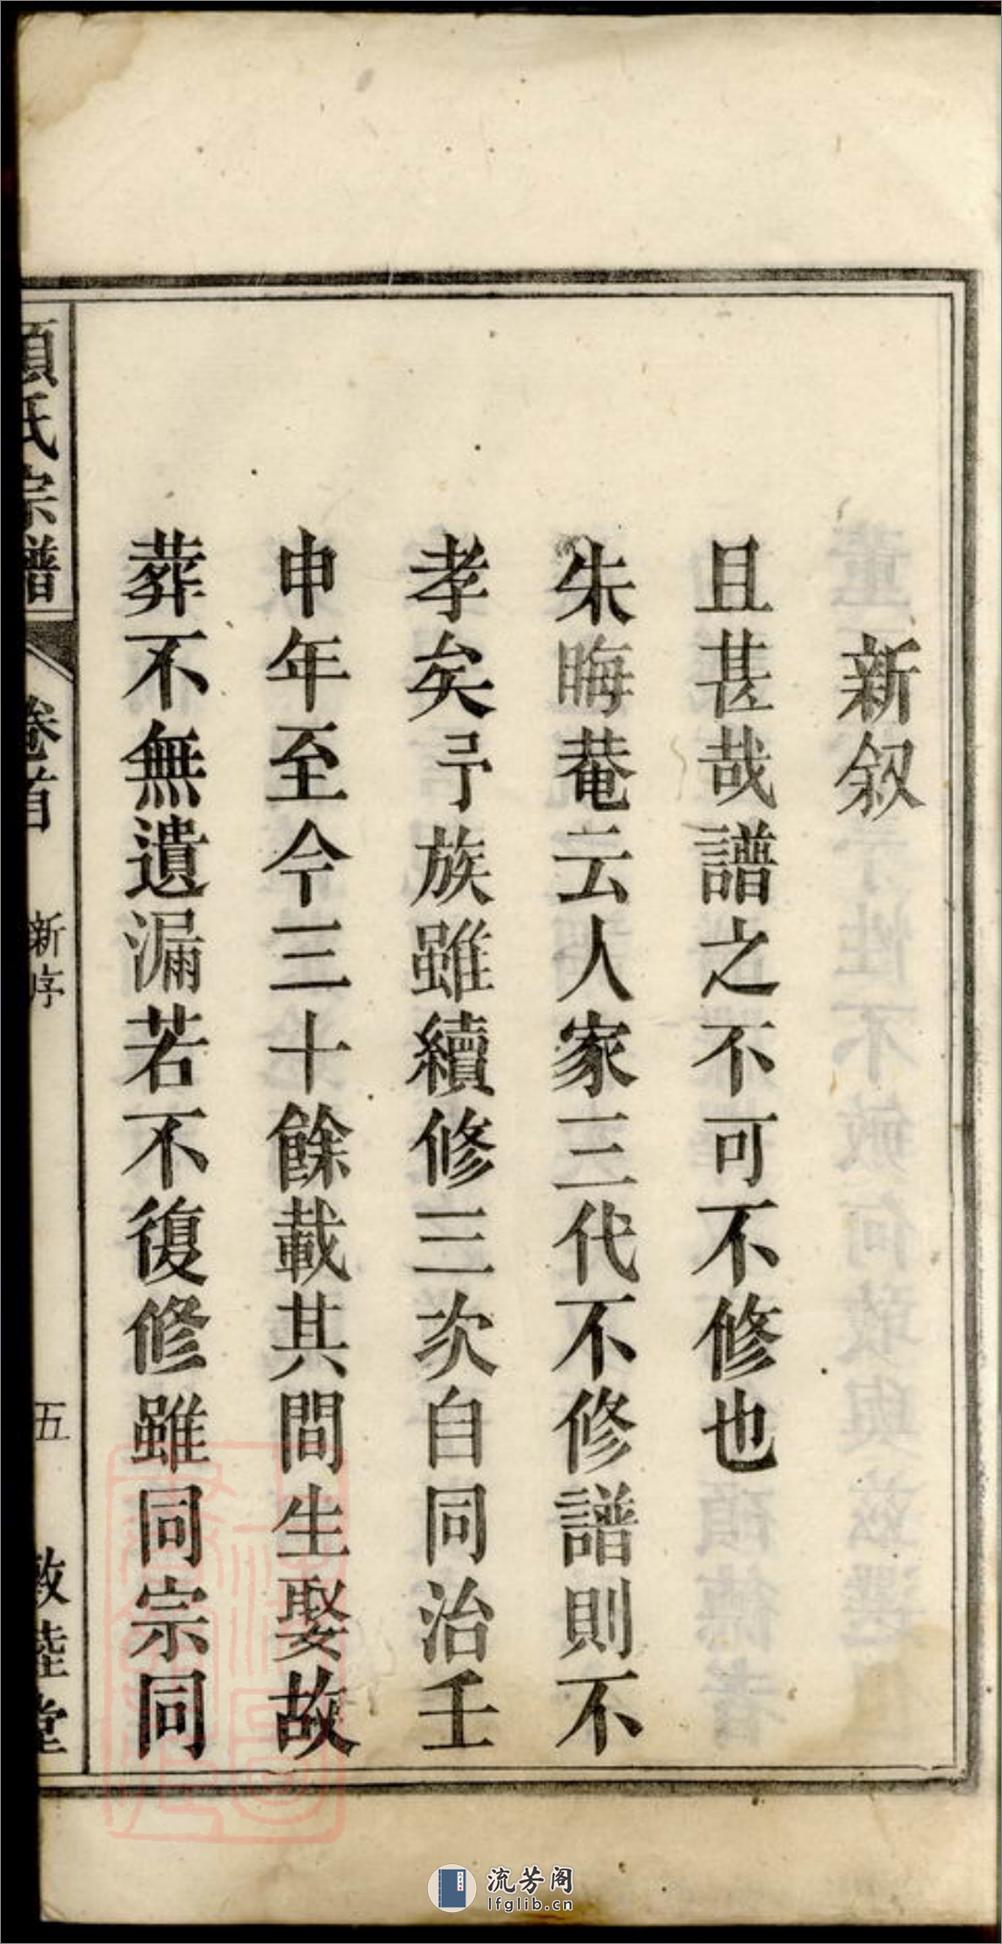 新叙
且甚哉譜之不可不修也
朱晦菴云人家三代不修譜則不
孝矣予族雖續修三次自同治壬
申年至今三十餘載其間生娶故
葬不無遺漏若不復修雖同宗同
氏宗譜
卷首
新序
五
敦睦堂
流芳阁
lfglib.cn